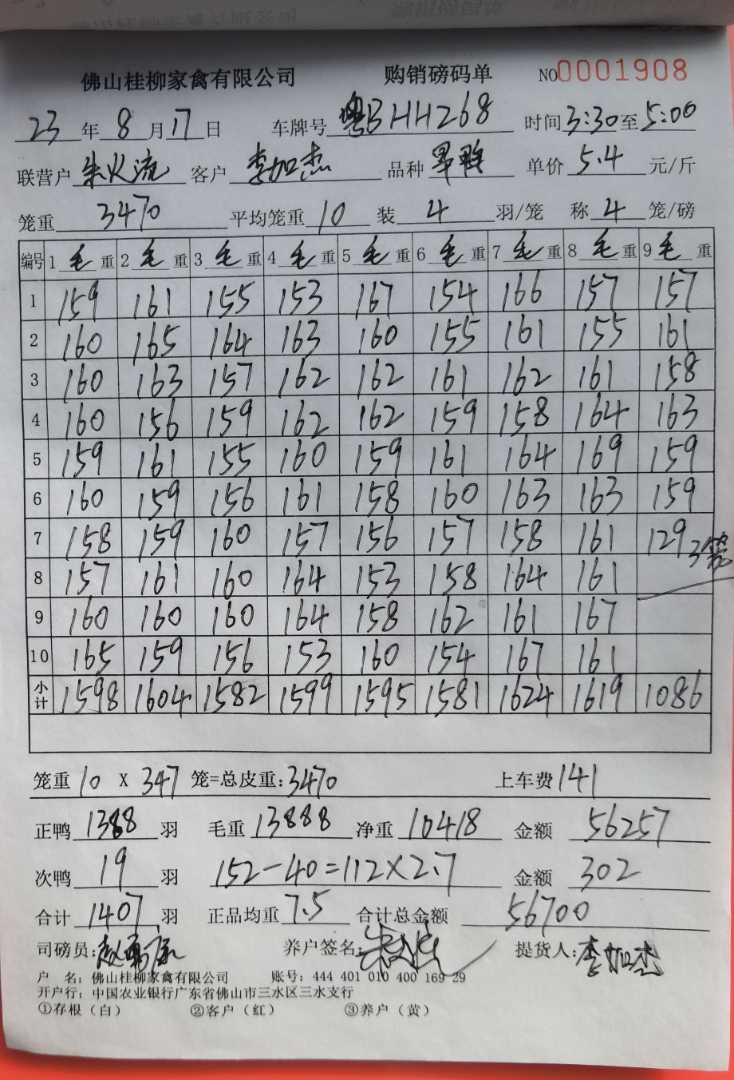 佛山桂柳家禽有限公司 购销磅码单 NO0001908
23 年 8 月 17 日 车牌号 粤BHH268 时间 3:30 至 5:00
联营户 朱火流 客户 李加杰 品种 单价 5.4 元/斤
笼重 3470 平均笼重 10 装 4 羽/笼 称 4 笼/磅
编号 1 毛 重 2 毛 重 3 毛 重 4 毛 重 5 毛 重 6 毛 重 7 毛 重 8 毛 重 9 毛 重
1 159 161 155 153 167 154 166 157 157
2 160 165 164 163 160 155 161 155 161
3 160 163 157 162 162 161 162 161 158
4 160 156 159 162 162 159 158 164 163
5 159 161 155 160 159 161 164 169 159
6 160 159 156 161 158 160 163 163 159
7 158 159 160 157 156 157 158 161 129 3笼
8 157 161 160 164 153 158 164 161
9 160 160 160 164 158 162 161 167
10 165 159 156 153 160 154 167 161
小计 1598 1604 1582 1599 1595 1581 1624 1619 1086
笼重 10 X 347 笼=总皮重: 3470 上车费 141
正鸭 1388 羽 毛重 13888 净重 10418 金额 56257
次鸭 19 羽 152-40=112×2.7 金额 302
合计 1407 羽 正品均重 7.5 合计总金额 56700
司磅员: 养户签名: 提货人: 李加杰
户 名: 佛山桂柳家禽有限公司 账号: 444 401 010 400 169 29
开户行: 中国农业银行广东省佛山市三水区三水支行
①存根（白） ②客户（红） ③养户（黄）